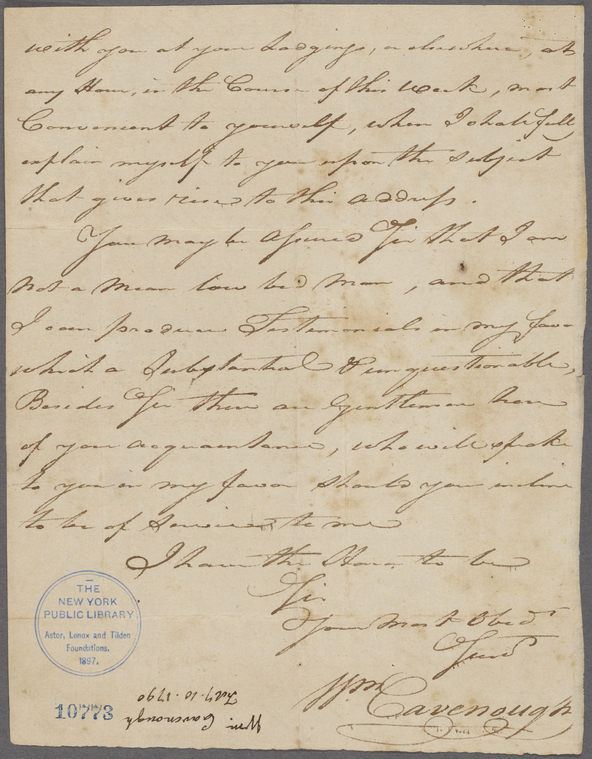 with you at your Lodgings, or elsewhere, at
any Hour, in the Course of this Week, most
Convenient to yourself, when I shall full
explain myself to you upon the Subject
that gives rise to this address.
You may be Assured Sir that I am
not a mean low bred man, and that
I can produce Testimonials in my favo
which a Substantial & unquestionable,
Besides Sir there are Gentlemen here
of your acquaintance, who will speak
to you in my favor should you incline
to be of Service to me
I have the Honor to be
Sir
Your Most Obedt
Servt
Wm Cavenough
THE
NEW YORK
PUBLIC LIBRARY
Astor, Lenox and Tilden
Foundations.
1897.
10773
Wm Cavenough
Feby. 10. 1790